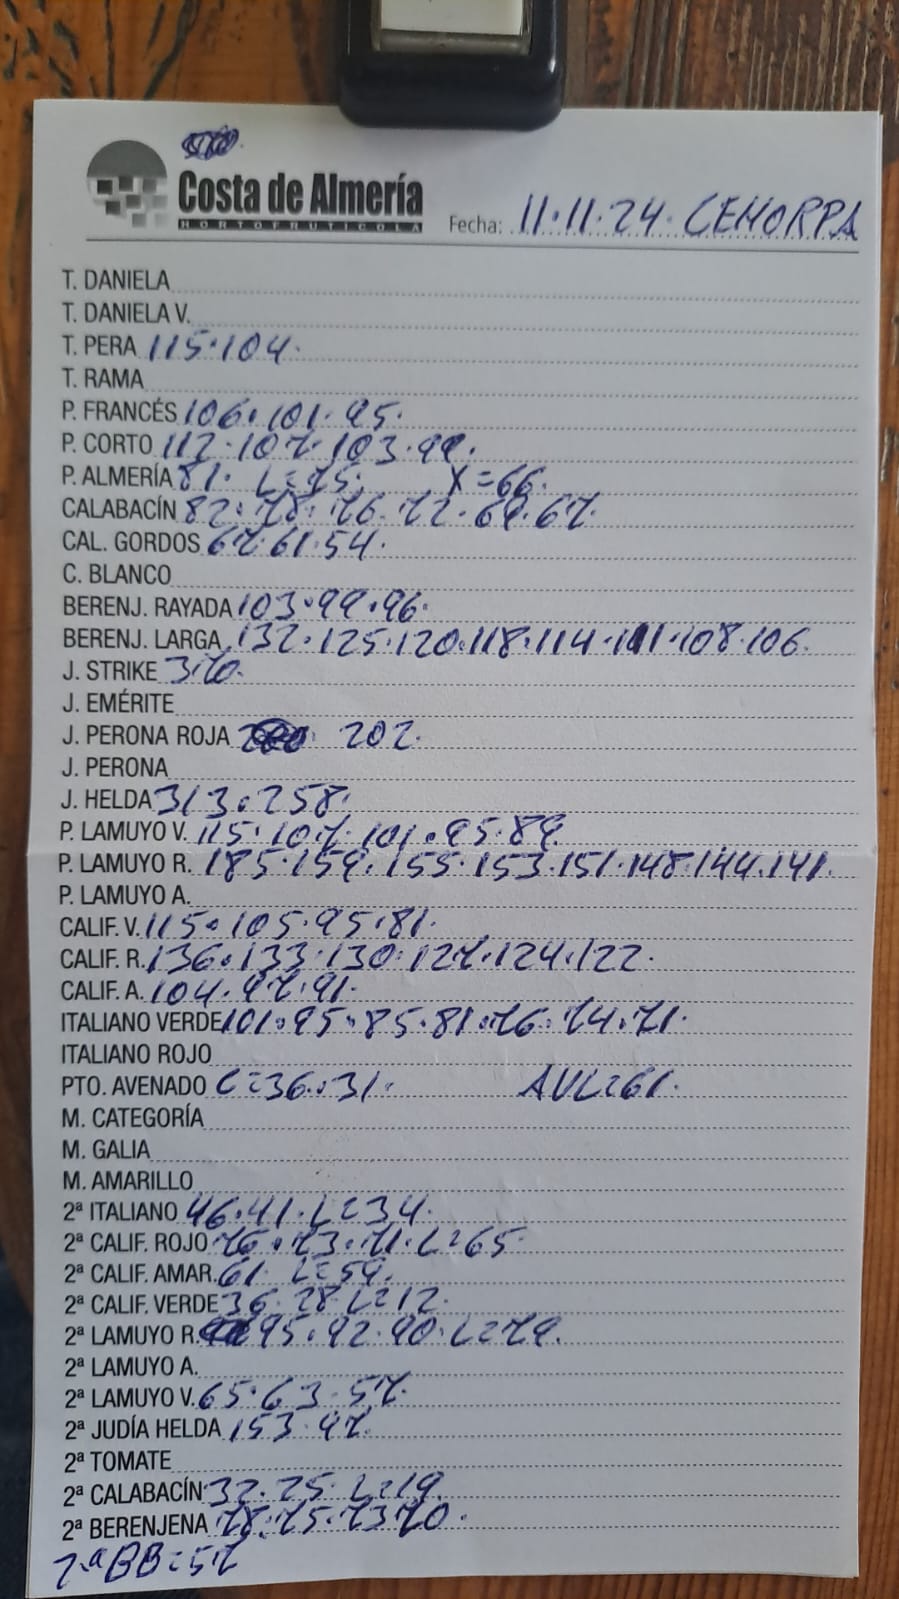 Costa de Almería
HORTOFRUTICOLA
Fecha: 11.11.24. CEHORPA
T. DANIELA
T. DANIELA V.
T. PERA 115.104.
T. RAMA
P. FRANCÉS 106.101.95.
P. CORTO 112.107.103.99.
P. ALMERÍA 81. L=75. X=66.
CALABACÍN 82.78.76.72.69.67.
CAL. GORDOS 67.61.54.
C. BLANCO
BERENJ. RAYADA 103.99.96.
BERENJ. LARGA 132.125.120.118.114.111.108.106.
J. STRIKE 370.
J. EMÉRITE
J. PERONA ROJA 202.
J. PERONA
J. HELDA 313.258.
P. LAMUYO V. 115.107.101.95.89.
P. LAMUYO R. 185.159.155.153.151.148.144.141.
P. LAMUYO A.
CALIF. V. 115.105.95.81.
CALIF. R. 136.133.130.127.124.122.
CALIF. A. 104.97.91.
ITALIANO VERDE 101.95.85.81.76.74.71.
ITALIANO ROJO
PTO. AVENADO C=36.31. AVL=61.
M. CATEGORÍA
M. GALIA
M. AMARILLO
2ª ITALIANO 46.41.L=34.
2ª CALIF. ROJO 76.73.71.L=65.
2ª CALIF. AMAR. 61. L=59.
2ª CALIF. VERDE 36.28.L=12.
2ª LAMUYO R. 95.92.90.L=79.
2ª LAMUYO A.
2ª LAMUYO V. 65.63.57.
2ª JUDÍA HELDA 153.97.
2ª TOMATE
2ª CALABACÍN 32.25.L=19.
2ª BERENJENA 78.75.73.70.
2ªBB=57